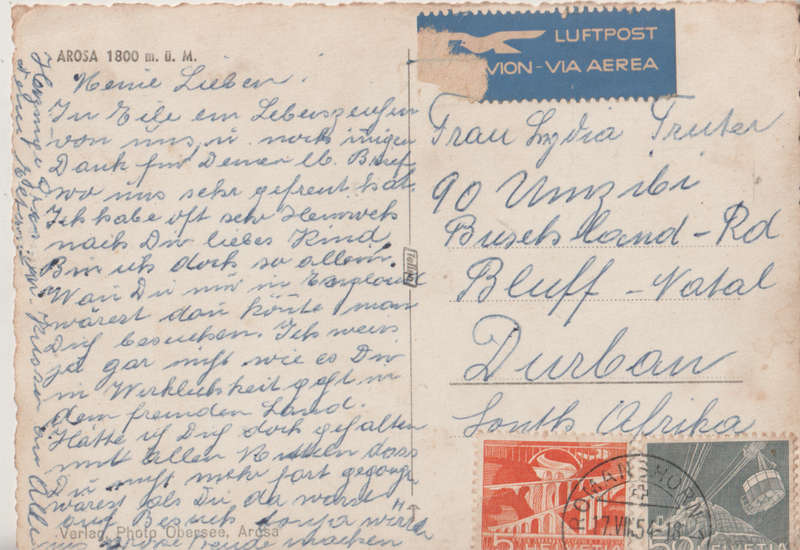 AROSA 1800 m. ü. M.
Meine Lieben!
In Eile ein Lebenszeichen
von uns, u. noch innigen
Dank für Deinen lb. Brief
wo uns sehr gefreut hat.
Ich habe oft sehr Heimweh
nach Dir liebes Kind
Bin ich doch so allein.
Wan Du nur in England
wärest dan könte man
Dich besuchen. Ich weis
ja gar nicht wie es Dir
in Wirklichkeit geht in
dem fremden Land.
Hätte ich Dich doch gehalten
mit allen Mitteln dass
Du nicht mehr fort gegange
wärest als Du da warst
auf Besuch
machen
Verlag, Photo Obersee, Arosa
Herzinge Grüsse Küsse an Alle
Deine
LUFTPOST
VION - VIA AEREA
Frau Lydia Truter
90 Umzibi
Buschland-Rd
Bluff-Natal
Durban
South Afrika
ROMANSHORN
17.VII.54-18
5
HELVETIA